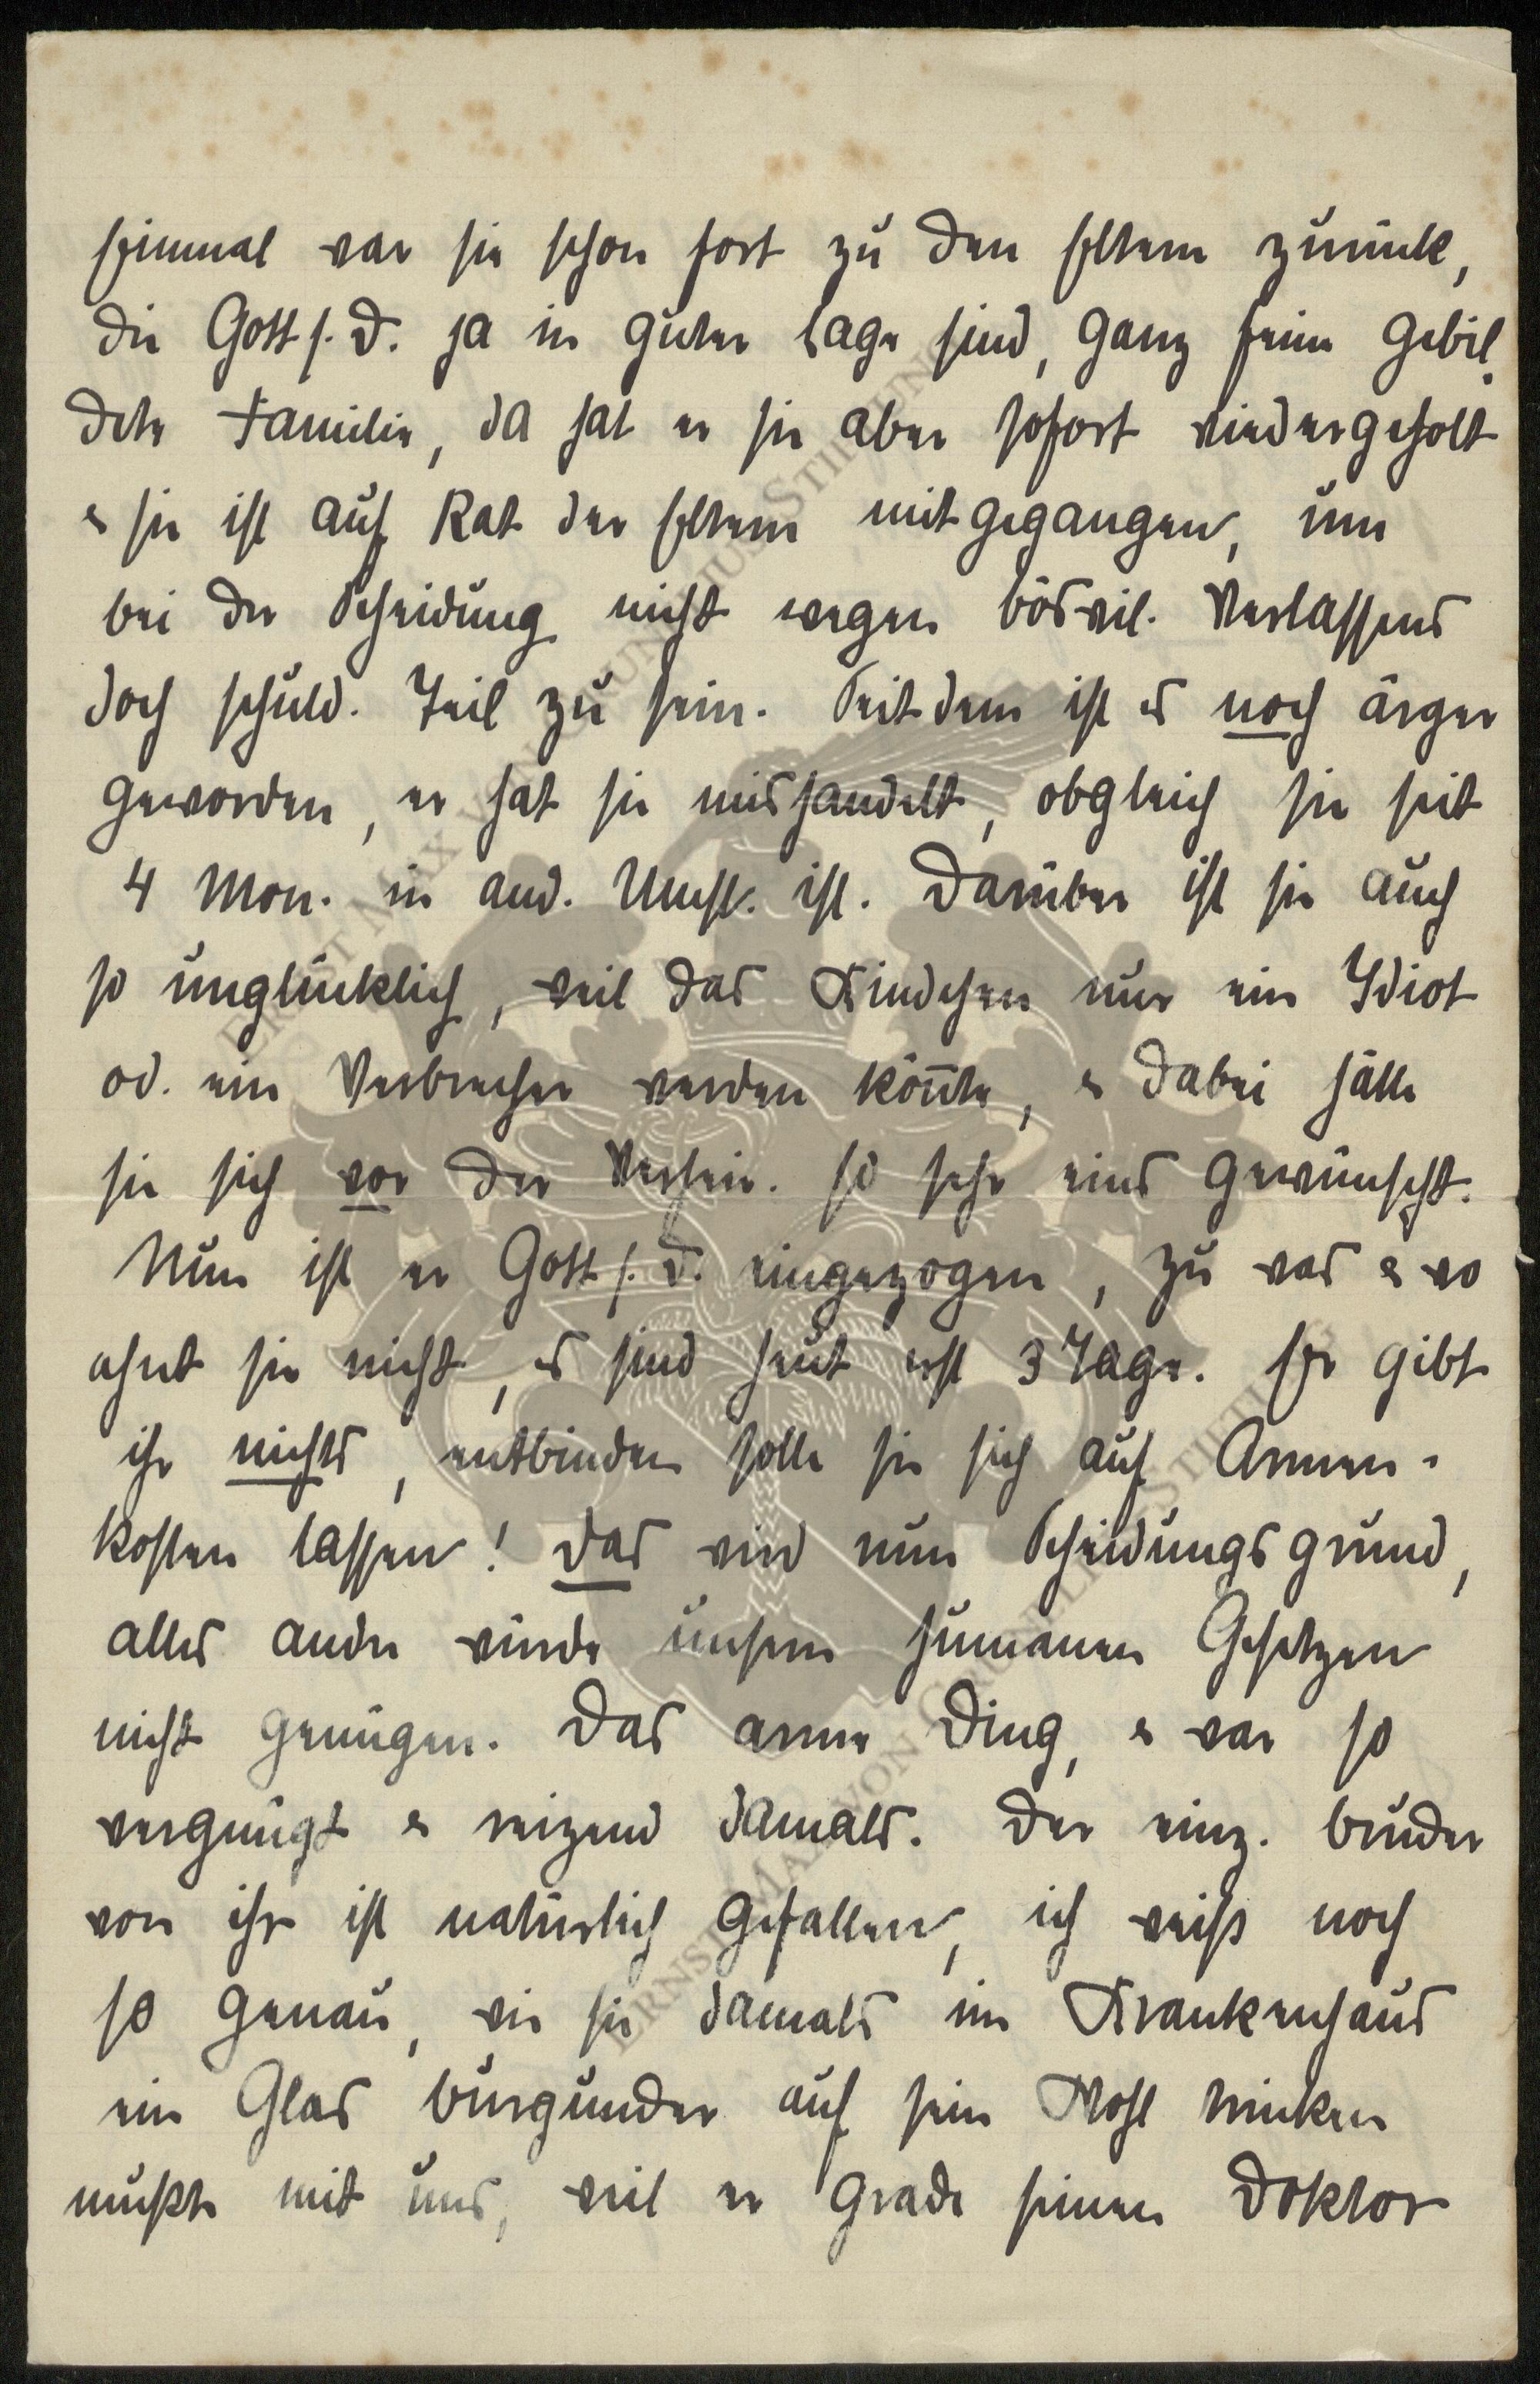 Einmal war sie schon fort zu den Eltern zurück,
die Gott s. D. ja in guter Lage sind, ganz feine gebil-
dete Familie, da hat er sie aber sofort wiedergeholt
& sie ist auf Rat der Eltern mitgegangen, um
bei der Scheidung nicht wegen böswil. Verlassens
doch schuld. Teil zu sein. Seitdem ist es noch ärger
geworden, er hat sie mishandelt, obgleich sie seit
4 Mon. in and. Umst. ist. Darüber ist sie auch
so unglücklich, weil das Kindchen nur ein Idiot
od. ein Verbrecher werden könnte, & dabei hätte
sie sich vor der Verhei. so sehr eins gewünscht.
Nun ist er Gott s. D. eingezogen, zu was & wo
ahnt sie nicht, es sind heut erst 3 Tage. Er gibt
ihr nichts, entbinden solle sie sich auf Armen-
kosten lassen! Das wird nun Scheidungsgrund,
alles andre würde unsern humanen Gesetzen
nicht genügen. Das arme Ding, & war so
vergnügt & reizend damals. Der einz. Bruder
von ihr ist natürlich gefallen, ich weiss noch
so genau, wie sie damals im Krankenhaus
ein Glas Burgunder auf sein Wohl trinken
musste mit uns, weil er grade seinen Doktor
ERNST MAX VON GRUNELIUS-STIFTUNG
ERNST MAX VON GRUNELIUS-STIFTUNG